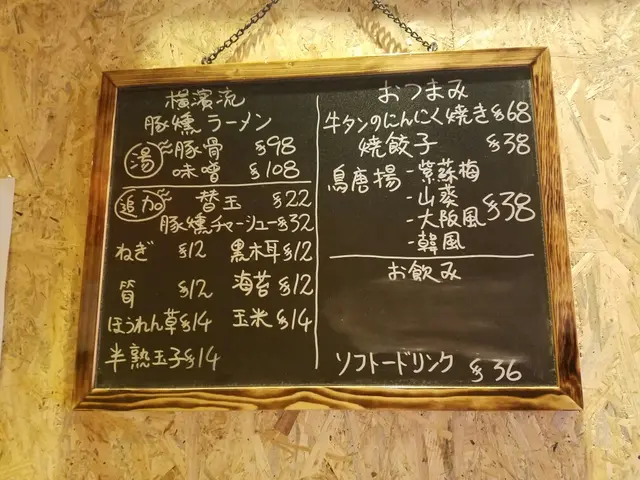 横濱流
豚燻ラーメン
湯 豚骨 $98
味噌 $108
追加 替玉 $22
豚燻チャーシュー$32
ねぎ $12 黒木耳$12
筍 $12 海苔$12
ほうれん草$14 玉米$14
半熟玉子$14
おつまみ
牛タンのにんにく焼き$68
焼餃子 $38
鳥唐揚 -紫蘇梅
-山葵
-大阪風 $38
-韓風
お飲み
ソフトードリンク $36